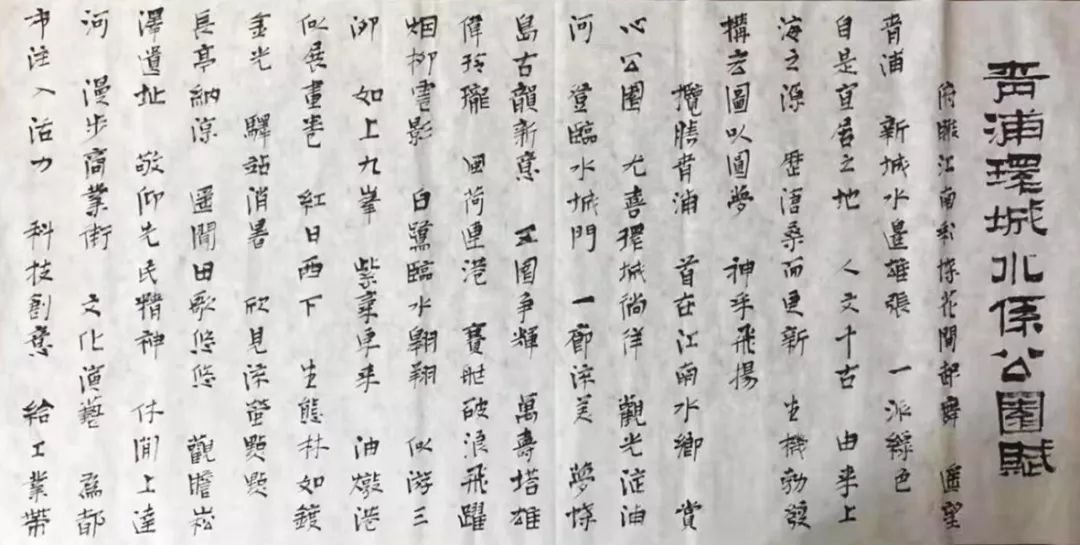 青浦環城水系公園賦
俯瞰江南彩蝶花間起舞 遥望
青浦 新城水邊雄張 一派綠色
自是宜居之地 人文千古 由来上
海之源 歷滄桑而更新 生機勃發
構宏圖以圓夢 神采飛揚
攬勝青浦 首在江南水鄉 賞
心公園 尤喜環城徜徉 觀光淀浦
河 登臨水城門 一廊淙美 夢蝶
島古韻新意 五園争輝 萬壽塔雄
偉玲瓏 風荷連港 賽艇破浪飛躍
烟柳雲影 白鷺臨水翱翔 似游三
泖 如上九峯 紫氣東来 油墩港
似展畫卷 紅日西下 生態林如鍍
金光 驛站消暑 欣見流螢點點
長亭納涼 遥聞田歌悠悠 觀瞻崧
澤遺址 敬仰先民精神 休閒上達
河 漫步商業街 文化演藝 爲都
市注入活力 科技創意 給工業帶